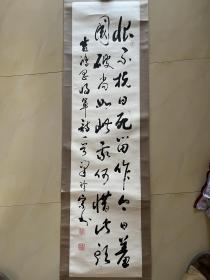 恨不抗日死留作今日羞
國破尚如此我何惜此頭
吉鴻昌將軍詩一首